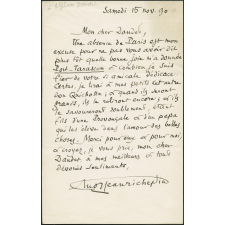 Samedi 15 nov. 90
Mon cher Daudet,
Une absence de Paris est mon
excuse pour ne pas vous avoir dit
plus tôt quelle bonne joie m'a donnée
Port-Tarascon et combien je suis
fier de votre si amicale dédicace.
Certes, je lirai à mes petits cet autre
don Quichotte ; et quand ils seront
grands, ils le reliront encore ; et ils
le savoureront doublement, étant
fils d'une Provençale et d'un papa
qui les élève dans l'amour des belles
choses. Merci pour eux et pour moi,
et croyez, je vous prie, mon cher
Daudet, à mes meilleurs et tout
dévoués sentiments.
Jean Richepin